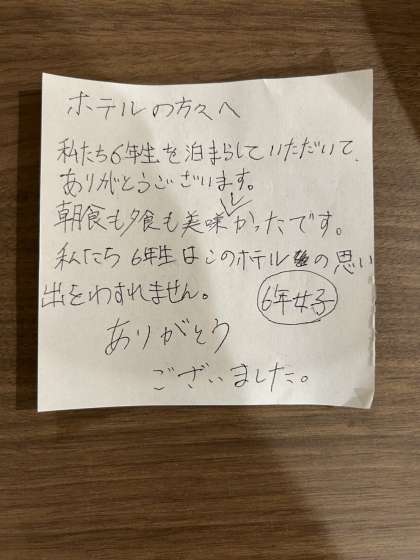 ホテルの方々へ
私たち6年生を泊まらしていただいて、
ありがとうございます。
朝食も夕食も美味しかったです。
私たち 6年生はこのホテルの思い
出をわすれません。
6年女子
ありがとう
ございました。